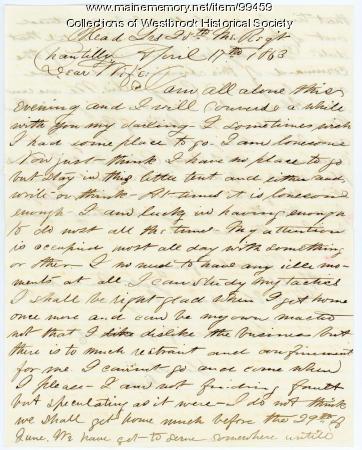 https://www.mainememory.net/item/99459
Collections of Westbrook Historical Society
Head Qrs 25th Me Regt
Chantilly April 17th 1863
Dear Wife
I am all alone this
evening and I will converse a while
with you my darling - I sometimes wish
I had some place to go. I am lonesome
Now just think I have no place to go
but stay in this little tent and either read
write or think - At times it is lonesome
enough - I am lucky in having enough
to do most all the time - My attention
is occupied most all day with something
or other - I no need to have any idle mo-
ments at all I can study my tactics
I shall be right glad when I get home
once more and can be my own master
not that I like dislike the business but
there is to much restraint and confinement
for me. I caint go and come when
I please - I am not finding fault
but speculating as it were - I do not think
we shall get home much before the 29th of
June. We have got to serve somewhere untill